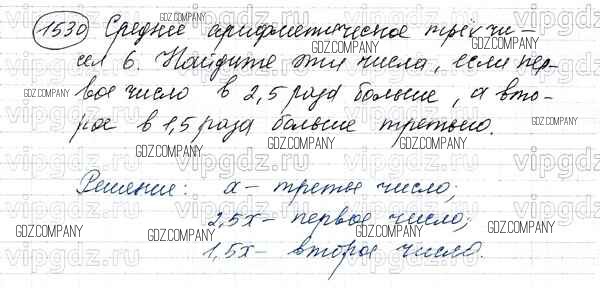 1530 Среднее арифметическое трёх чи-
сел 6. Найдите эти числа, если пер-
вое число в 2,5 раза больше, а вто-
рое в 1,5 раза больше третьего.
Решение: х – третье число;
2,5х – первое число;
1,5х – второе число.